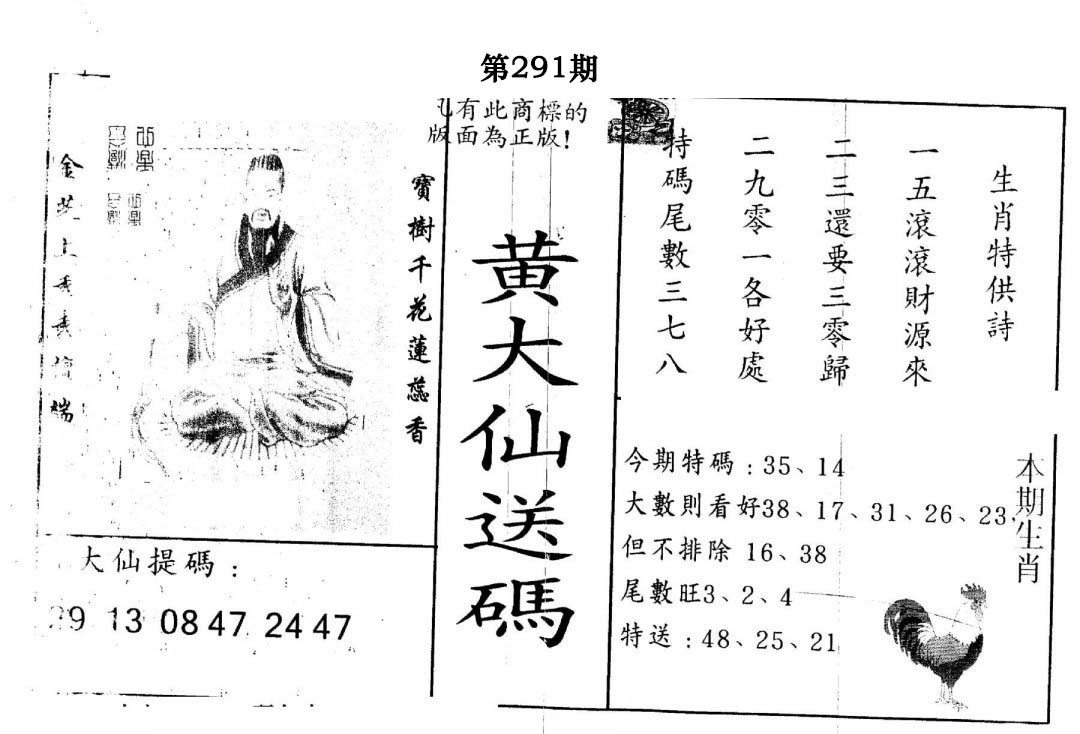 第291期
凡有此商標的
版面為正版!
黄大仙送碼
寶樹千花蓮蕊香
金
上
端
大仙提碼:
9 13 08 47 24 47
生肖特供詩
一五滾滾財源來
二三還要三零歸
二九零一各好處
特碼尾數三七八
今期特碼:35、14
大數則看好38、17、31、26、23,
但不排除 16、38
尾數旺3、2、4
特送:48、25、21
本期生肖